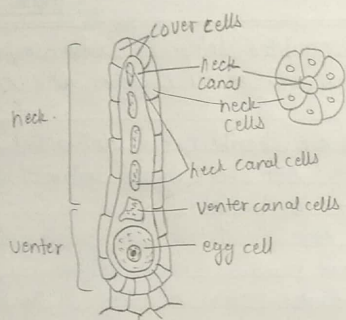 cover cells
neck
canal
neck
cells
neck.
neck canal cells
venter canal cells
venter
egg cell